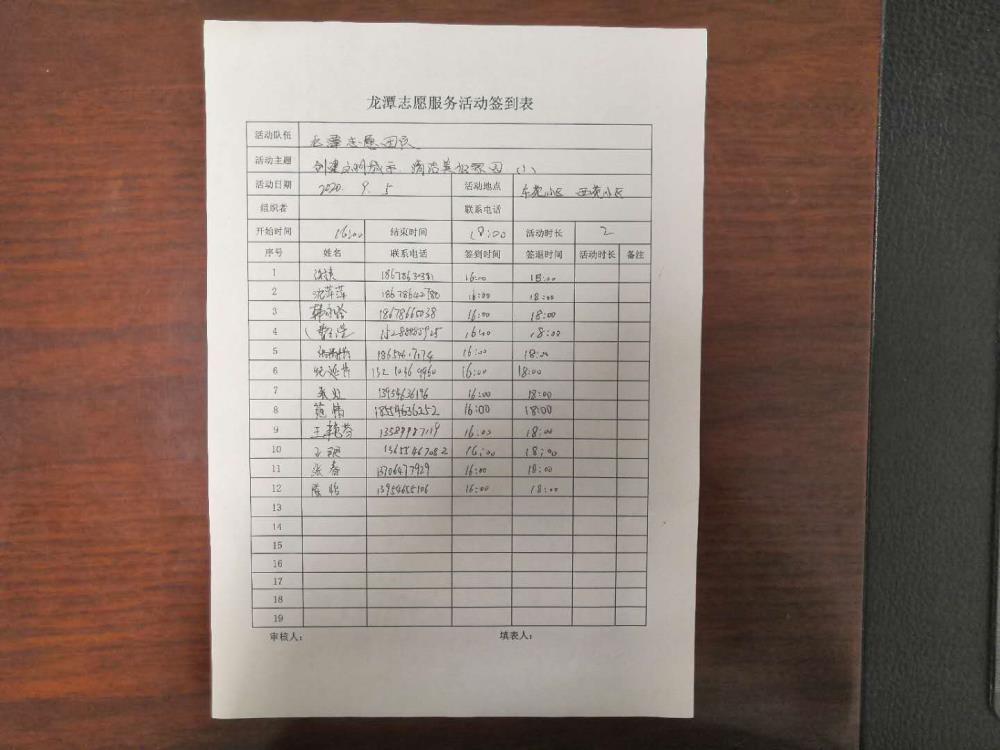 龙潭志愿服务活动签到表
活动队伍 龙潭志愿团队
活动主题 创建文明城市 清洁美化家园（1）
活动日期 2020. 9. 5 活动地点 东苑小区 西苑小区
组织者 联系电话
开始时间 16:00 结束时间 18:00 活动时长 2
序号 姓名 联系电话 签到时间 签退时间 活动时长 备注
1 16:00 18:00
2 沈萍萍 18678642780 16:00 18:00
3 18678665038 16:00 18:00
4 16:00 18:00
5 16:00 18:00
6 16:00 18:00
7 13954636196 16:00 18:00
8 范倩 18554636252 16:00 18:00
9 王 13589987119 16:00 18:00
10 13655467082 16:00 18:00
11 张春 13706477929 16:00 18:00
12 陈怡 13954655106 16:00 18:00
13
14
15
16
17
18
19
审核人： 填表人：